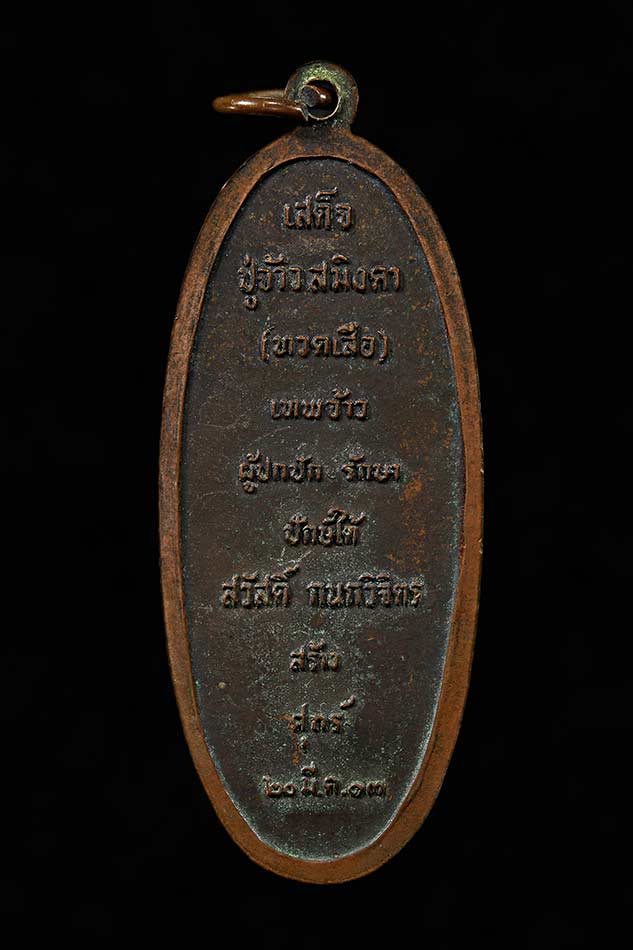 เสด็จ
ปู่จ้าวสมิงดา
(ทวดเสือ)
เทพจ้าว
ผู้ปกปัก รักษา
ปักษ์ใต้
สวัสดิ์ กนกวิจิตร
สร้าง
ศุกร์
๒๐ มี.ค.๑๓